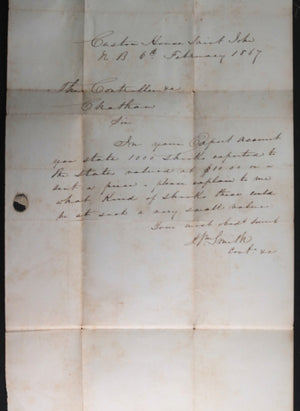 Custom House Saint John
N B 6th February 1867
The Controller &c
Chatham
Sir
In your Export account
you state 1000 shooks exported to
the States valued at $10.00 or a
cent a piece, please explain to me
what kind of shooks these could
be at such a very small value
Your most obedt Servt
Smith
Cont &c